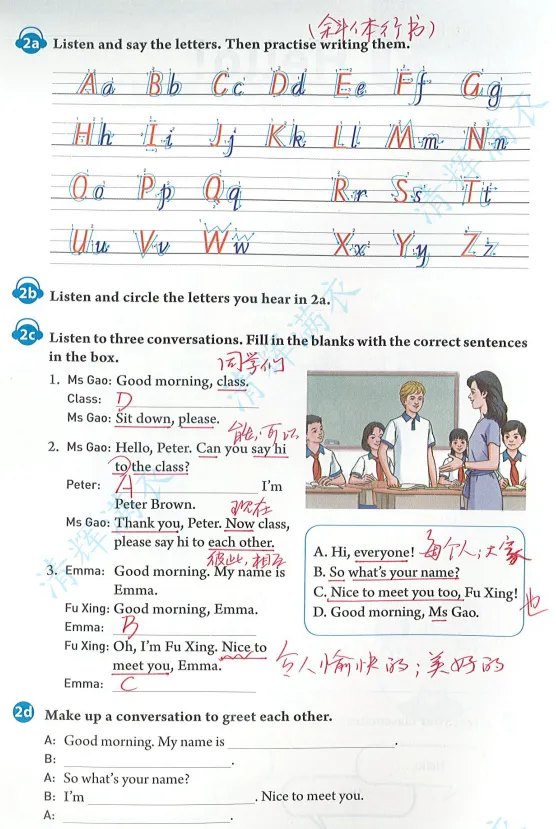 (斜体行书)
2a Listen and say the letters. Then practise writing them.
Aa Bb Cc Dd Ee Ff Gg
Hh Ii Jj Kk Ll Mm Nn
Oo Pp Qq Rr Ss Tt
Uu Vv Ww Xx Yy Zz
2b Listen and circle the letters you hear in 2a.
2c Listen to three conversations. Fill in the blanks with the correct sentences
in the box.
同学们
1. Ms Gao: Good morning, class.
Class: D
Ms Gao: Sit down, please.
能;可以
2. Ms Gao: Hello, Peter. Can you say hi
to the class?
Peter: A I'm
Peter Brown.
现在
Ms Gao: Thank you, Peter. Now class,
please say hi to each other.
彼此,相互
3. Emma: Good morning. My name is
Emma.
Fu Xing: Good morning, Emma.
Emma: B
Fu Xing: Oh, I'm Fu Xing. Nice to
meet you, Emma.
令人愉快的;美好的
Emma: C
A. Hi, everyone! 每个人;大家
B. So what's your name?
C. Nice to meet you too, Fu Xing!
也
D. Good morning, Ms Gao.
2d Make up a conversation to greet each other.
A: Good morning. My name is ____.
B: ____.
A: So what's your name?
B: I'm ____. Nice to meet you.
A: ____.
清辉满衣
清辉满衣
清辉满衣